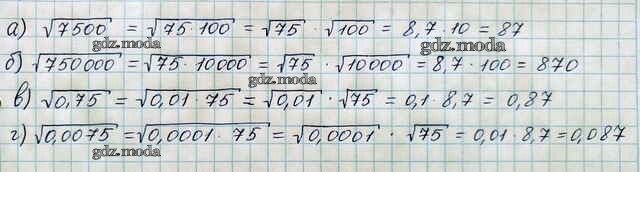 а) √7500 = √75·100 = √75 · √100 = 8,7·10 = 87
gdz.moda gdz.moda
б) √750000 = √75·10000 = √75 · √10000 = 8,7·100 = 870
gdz.moda
в) √0,75 = √0,01·75 = √0,01 · √75 = 0,1·8,7 = 0,87
г) √0,0075 = √0,0001·75 = √0,0001 · √75 = 0,01·8,7 = 0,087
gdz.moda